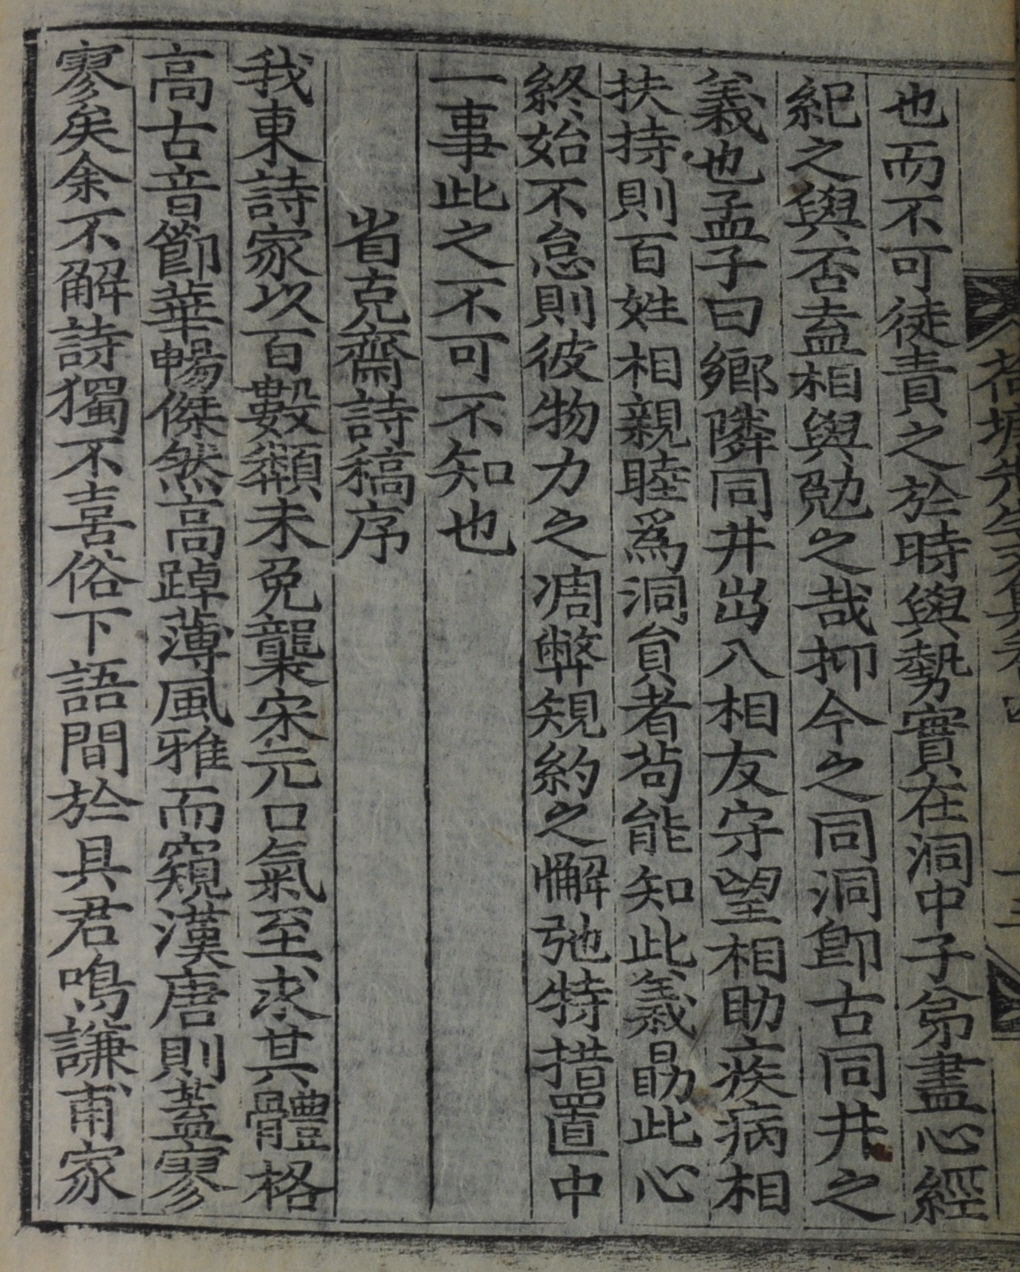 也而不可徒責之於時與勢實在洞中子弟盡心經
紀之與否盍相與勉之哉抑今之同洞即古同井之
義也孟子曰鄕隣同井出入相友守望相助疾病相
扶持則百姓相親睦爲洞員者苟能知此義勗此心
終始不怠則彼物力之凋弊規約之懈弛特措置中
一事此之不可不知也
省克齋詩稿序
我東詩家以百數纇未免襲宋元口氣至求其體格
高古音節華暢傑然高踔薄風雅而窺漢唐則蓋寥
寥矣余不解詩獨不喜俗下語間於具君鳴謙甫家